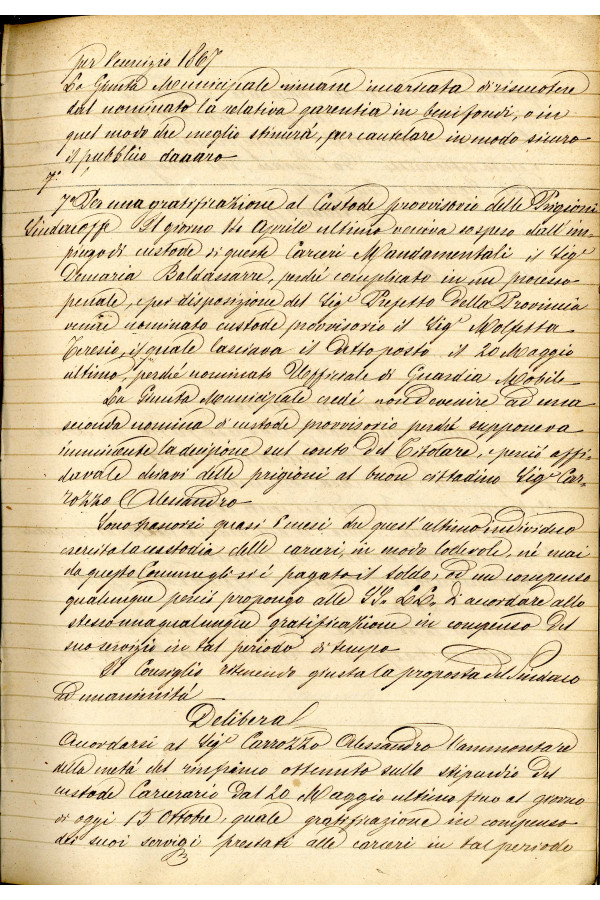 per l'esercizio 1867
La Giunta Municipale rimane incaricata di riscuotere
dal nominato la relativa garentia in beni fondi, o in
quel modo che meglio stimerà, per cautelare in modo sicuro
il pubblico danaro
7°
7° Per una gratificazione al Custode provvisorio delle Prigioni
Sindaco ff. Il giorno 14 Aprile ultimo veniva sospeso dall'im-
piego di custode di queste Carceri Mandamentali il Sigr
Demaria Baldassarre, perché complicato in un processo
penale, e per disposizione del Sigr Prefetto della Provincia
venire nominato custode provvisorio il Sigr Molfetta
Teresio, il quale lasciava il detto posto il 20 Maggio
ultimo, perché nominato Uffiziale di Guardia Mobile
La Giunta Municipale credé non devenire ad una
seconda nomina di custode provvisorio perché supponeva
imminente la decisione sul conto del Titolare, e perciò affi-
dava le chiavi delle prigioni al buon cittadino Sigr Car-
rozzo Alessandro
Sono trascorsi quasi 5 mesi che quest'ultimo individuo
esercita la custodia delle carceri, in modo lodevole, né mai
da questo Comune gli si è pagato il soldo, od un compenso
qualunque perciò propongo alle SS. LL. di accordare allo
stesso una qualunque gratificazione in compenso del
suo servizio in tal periodo di tempo
Il Consiglio ritenendo giusta la proposta del Sindaco
ad unanimità
Delibera
Accordarsi al Sigr Carrozzo Alessandro l'ammontare
della metà del risparmio ottenuto sullo stipendio del
custode Carcerario dal 20 Maggio ultimo fino al giorno
di oggi 15 Ottobre, quale gratificazione in compenso
dei suoi servigi prestati alle carceri in tal periodo